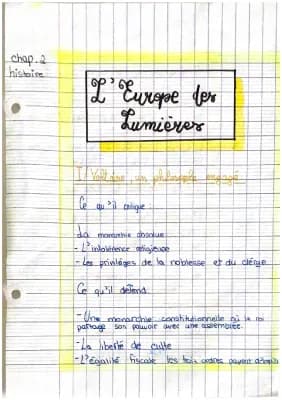 chap. 2
histoire
L'Europe des
Lumières
I/ Voltaire, un philosophe engagé
Ce qu'il critique
La monarchie absolue
- L'intolérence religieuse
- Les privilèges de la noblesse et du clergé
Ce qu'il défend
- Une monarchie constitutionnelle où le roi
partage son pouvoir avec une assemblée.
- La liberté de culte
- L'égalité fiscale les trois ordres payent